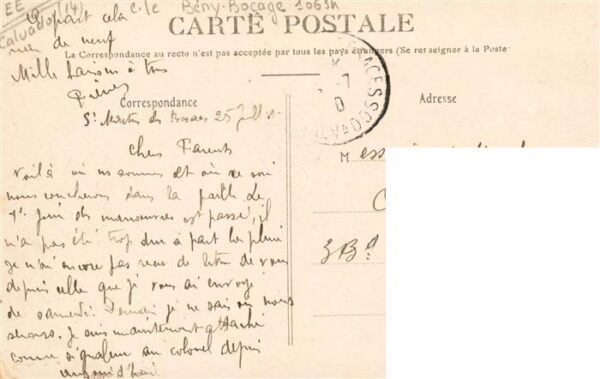 EE (14) c.le Bény-Bocage 10634
Calvados
A part cela
rien de neuf
Mille baisers à tous
Pierre
CARTE POSTALE
La Correspondance au recto n'est pas acceptée par tous les pays étrangers (Se renseigner à la Poste
Correspondance
Adresse
St Martin des Besaces 25 juillet
Chers Parents
Voilà où nous sommes et où ce soir
nous coucherons dans la paille Le
1er jour des manoeuvres est passé, il
n'a pas été trop dur à part la pluie
Je n'ai encore pas reçu de lettre de vous
depuis celle que je vous ai envoyé
de samedi. Demain je ne sais où nous
serons. Je suis maintenant attaché
comme signaleur au colonel depuis
aujourd'hui
M
3 Bd
ACES
CALVADOS